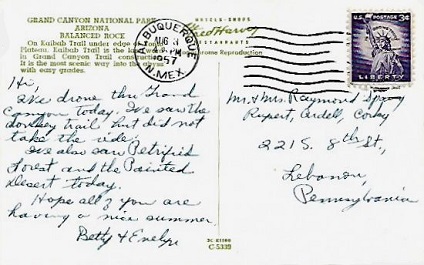 GRAND CANYON NATIONAL PARK
ARIZONA
BALANCED ROCK
On Kaibab Trail under edge of
Plateau. Kaibab Trail is the
in Grand Canyon Trail construction
It is the most scenic way into the
with easy grades.
Fred Harvey
chrome Reproduction
ALBUQUERQUE
AUG
PM
1957
N. MEX.
U.S. POSTAGE 3¢
LIBERTY
Hi,
We drove thru Grand
Canyon today. We saw the
donkey trail but did not
take the ride.
We also saw Petrified
Forest and the Painted
Desert today.
Hope all of you are
having a nice summer.
Betty & Evelyn
Mr. & Mrs. Raymond
Rupert, Ardell, Corby
221 S. 8th St.,
Lebanon,
Pennsylvania
C-5339